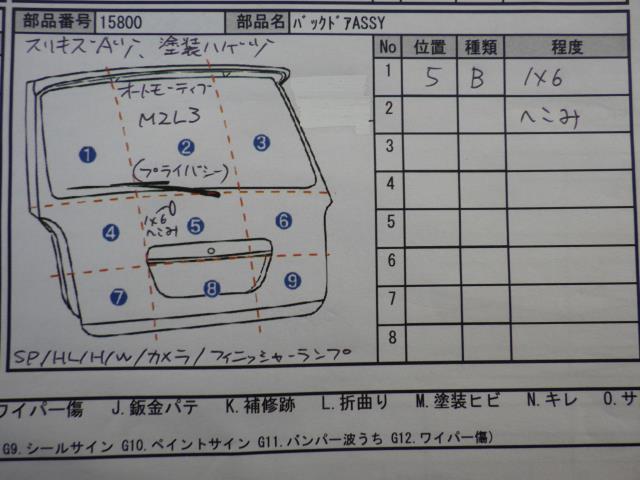 部品番号 15800 部品名 ﾊﾞｯｸﾄﾞｱASSY
スリキズ-Aﾂ、塗装ハゲ-ツ
No 位置 種類 程度
1 5 B 1×6
2 へこみ
3
4
5
6
7
8
オートモーティブ
M2L3
1 2 3
(プライバシー)
1×6
へこみ
4 5 6
7 8 9
SP/HL/H/W/カメラ/フィニッシャーランプ
ワイパー傷 J.鈑金パテ K.補修跡 L.折曲り M.塗装ヒビ N.キレ O.サ
G9.シールサイン G10.ペイントサイン G11.バンパー波うち G12.ワイパー傷)